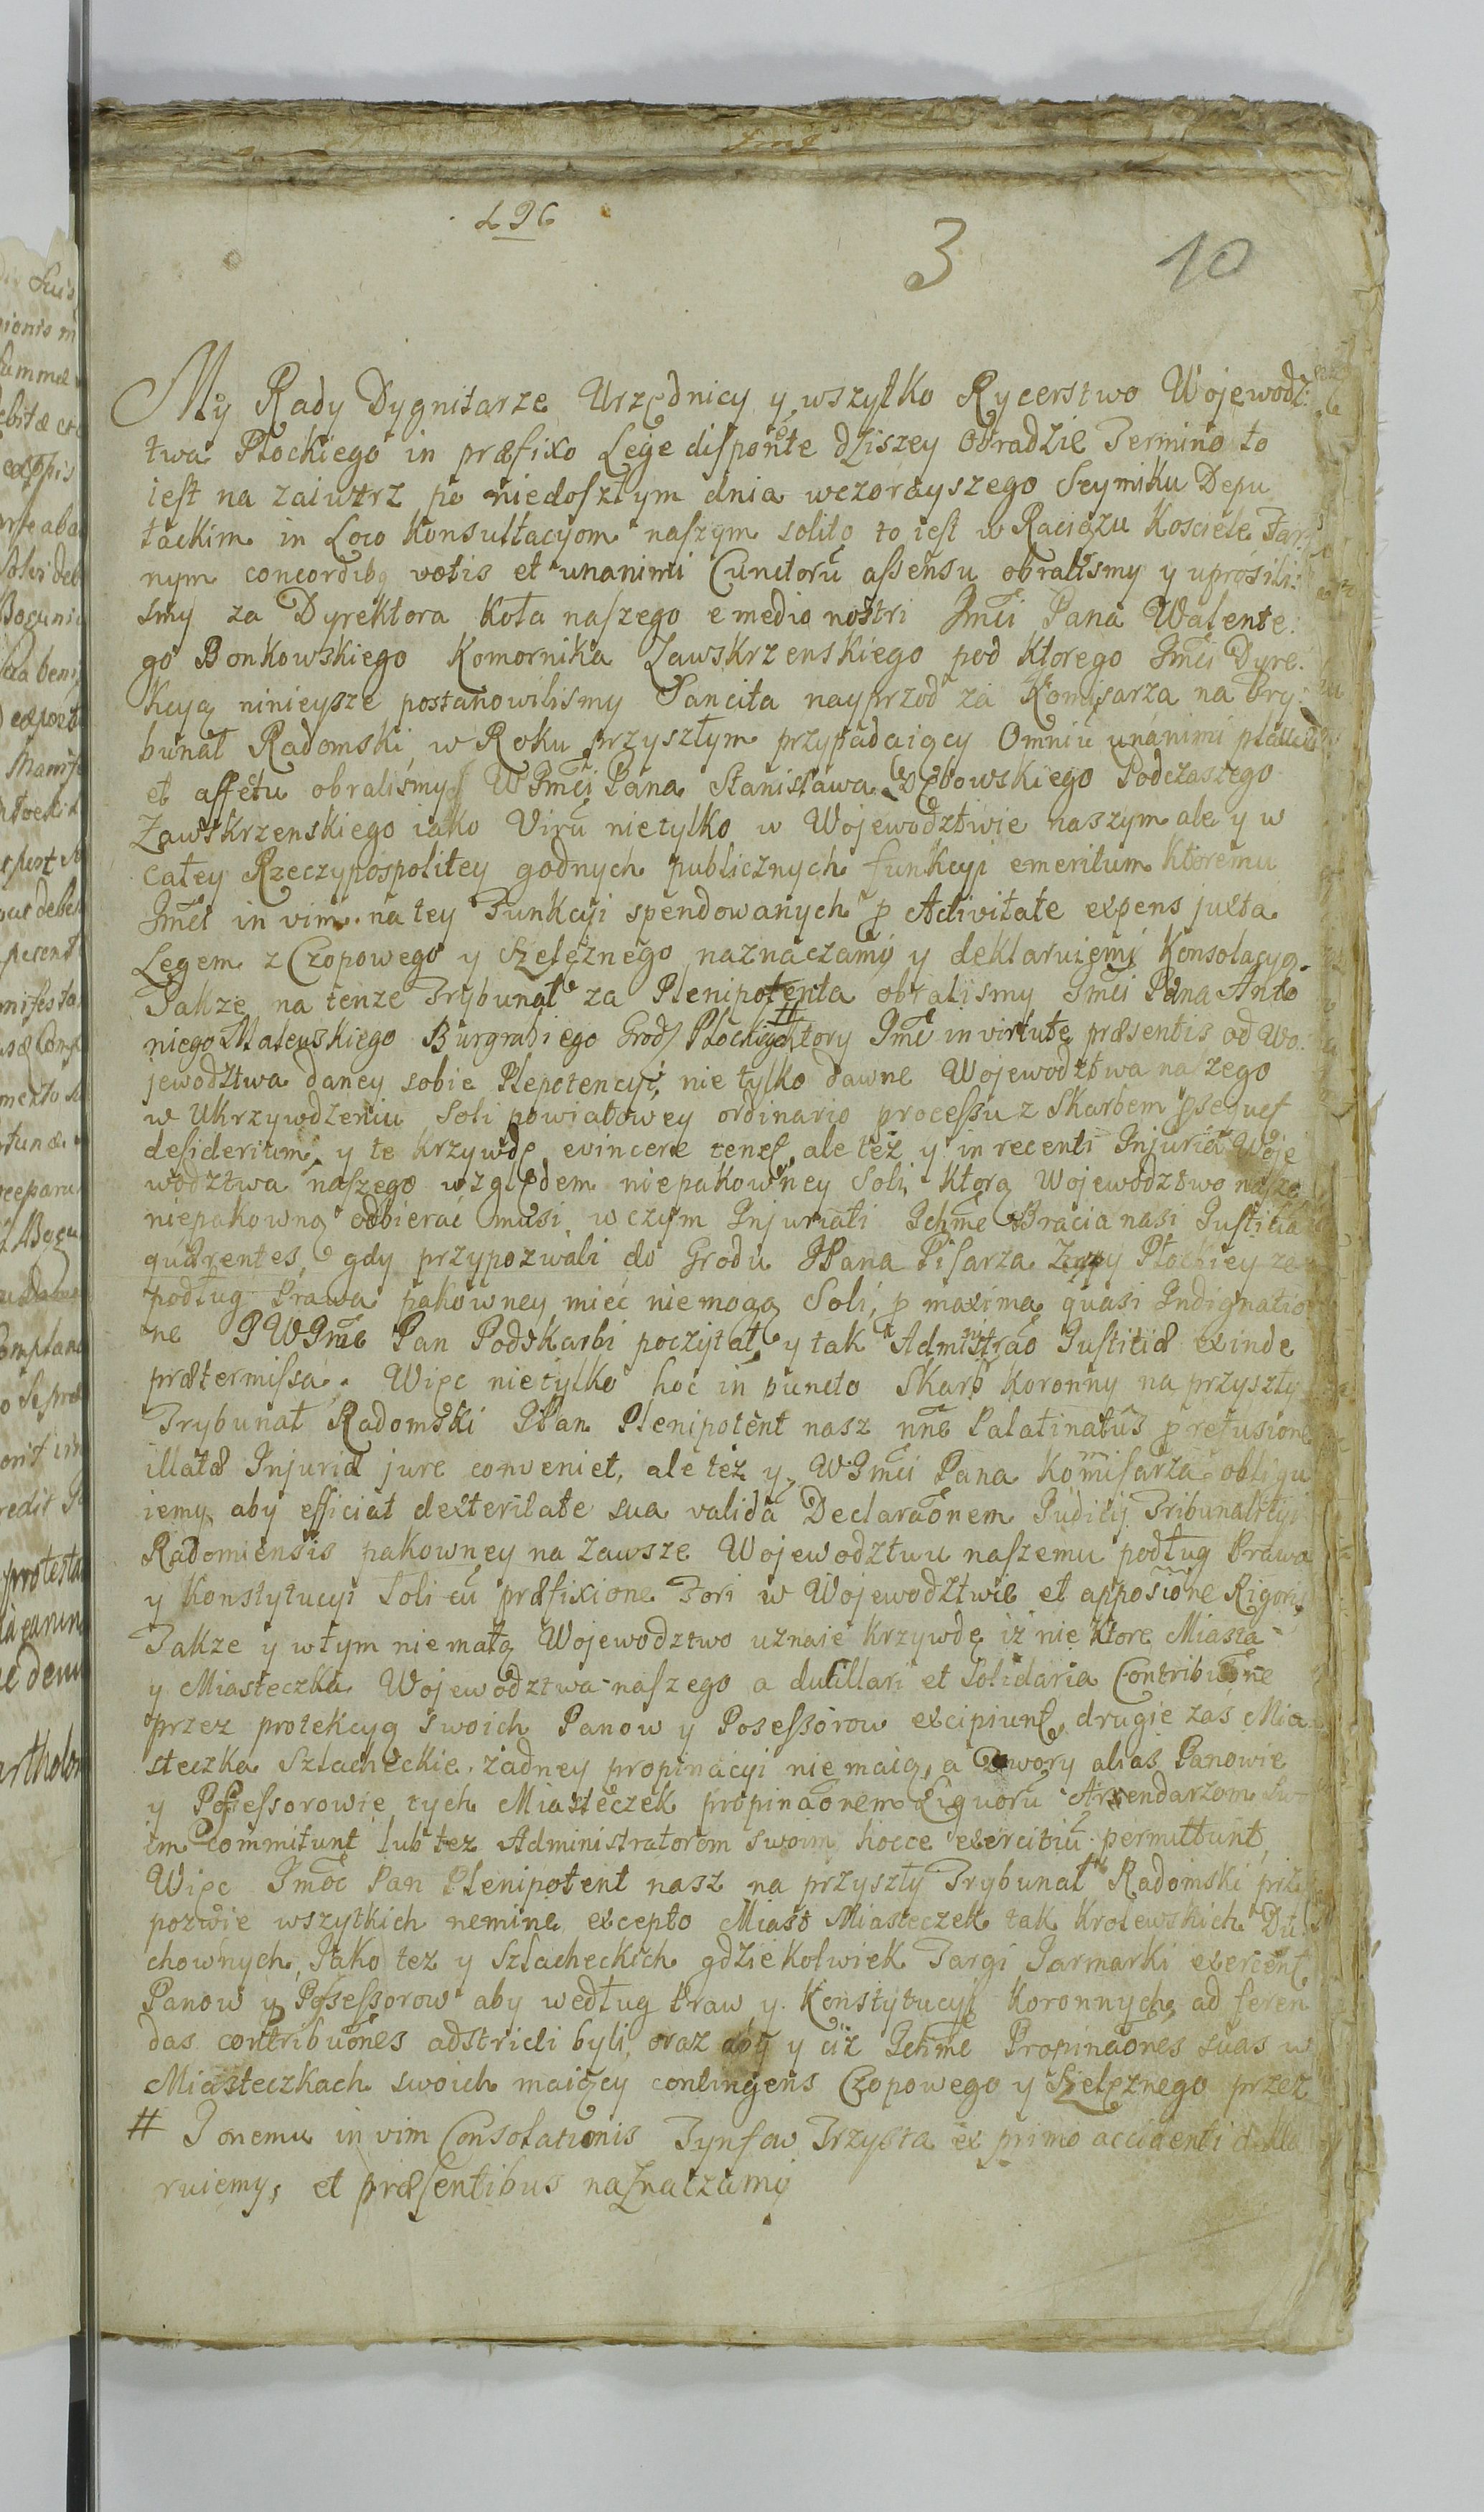 496
3 10
My Rady Dygnitarze Urzędnicy y wszytko Rycerstwo Wojewodz:
twa Płockiego in præfixo Lege disponẽte dzisiey Obradzie Termino to
iest na zaiutrz po niedoszłym dnia wczorayszego Seymiku Depu
tackim in Loco Konsultacyom naszym solito to iest w Raciążu Kosciele Far
nym concordibq votis et unanimi Cunctorũ assensu obralismy y uprosili:
smy za Dyrektora Koła naszego e medio nostri Jmći Pana Walente:
go Bonkowskiego Komornika Zawskrzenskiego pod ktorego Jmći Dyre:
kcyą ninieysze postanowilismy Sancita nayprzod za Komisarza na Try:
bunał Radomski w Roku przyszłym przypadaiący Omniũ unanimi
et affetu obralismy WJmći Pana Stanisława Dębowskiego Podczaszego
Zawskrzenskiego iako Virũ nietylko w Wojewodztwie naszym ale y w
całey Rzeczypospolitey godnych publicznych funkcyi emeritum ktoremu
Jmći in vim na tey Funkcyi spendowanych p Activitate expens juxta
Legem z Czopowego y Szelężnego naznaczamy y deklaruiemy Konsolacyą.
Takze na tenze Trybunał za Plenipotenta obralismy Jmći Pana Anto
niego Mateuskiego Burgrabiego Grodz Płockiego # ktory Jmć in virtute præsentis od Wo:
jewodztwa daney sobie Plepotencyi, nie tylko dawne Wojewodztwa naszego
w Ukrzywdzeniu Soli powiatowey ordinario processu z Skarbem
desideritum y te krzywdę evincere tenet, ale też y in recenti Injuria Woje
wodztwa naszego względem niepakowney Soli, ktorą Wojewodztwo nasze
niepakowną odbierać musi, w czym Injuriati Ichmć Bracia nasi Justitia
quærentes, gdy przypozwali do Grodu JPana Pisarza Zupy Płockiey ze
podług Prawa pakowney mieć niemogą Soli, p maxima quasi Indignatio
ne JWJmć Pan Podskarbi poczytał, y tak Administrao Justitiæ exinde
prætermissa. Więc nietylko hoc in puncto Skarb koronny na przyszły
Trybunał Radomski JPan Plenipotent nasz nñe Palatinatus p refusione
illatæ Injuriæ jure conveniet, ale też y WJmći Pana Kommisarza obligu
iemy, aby efficiat dexteritate sua valida Declaraõnem Judicij Tribunalitij
Radomiensis pakowney na zawsze Wojewodztwu naszemu podług Prawa
y Konstytucyi Soli cũ præfixione Fori w Wojewodztwie et apposiõne Rigoris
Takze y w tym niemałą Wojewodztwo uznaie krzywdę iż nie ktore Miasta
y Miasteczka Wojewodztwa naszego a dutillari et Solidaria Contribuõne
przez protekcyą swoich Panow y Posessorow excipiunt, drugie zaś Mia
steczka Szlacheckie, żadney propinacyi nie maią, a Dwory alias Panowie
y Possessorowie tych Miasteczek propinaõnem Liquorũ Arendarzom Swo
im Committunt lub tez Administratorom swoim hocce exercitiũ permittunt,
Więc Jmõć Pan Plenipotent nasz na przyszły Trybunał Radomski przy
pozwie wszytkich nemine excepto Miast Miasteczek tak Krolewskich Du
chownych, Jako tez y Szlacheckich gdziekolwiek Targi Jarmarki exercent
Panow y Posessorow aby według Praw y Konstytucyi Koronnych, ad feren
das contribuões adstricti byli, oraz aby y ciż Ichmć Propinaões suas w
Miasteczkach swoich maiący contingens Czopowego y Szelęznego przez
# Jonemu in vim Consolationis Tynfow Trzysta ex primo accidenti dekla
ruiemy, et præsentibus naznaczamy